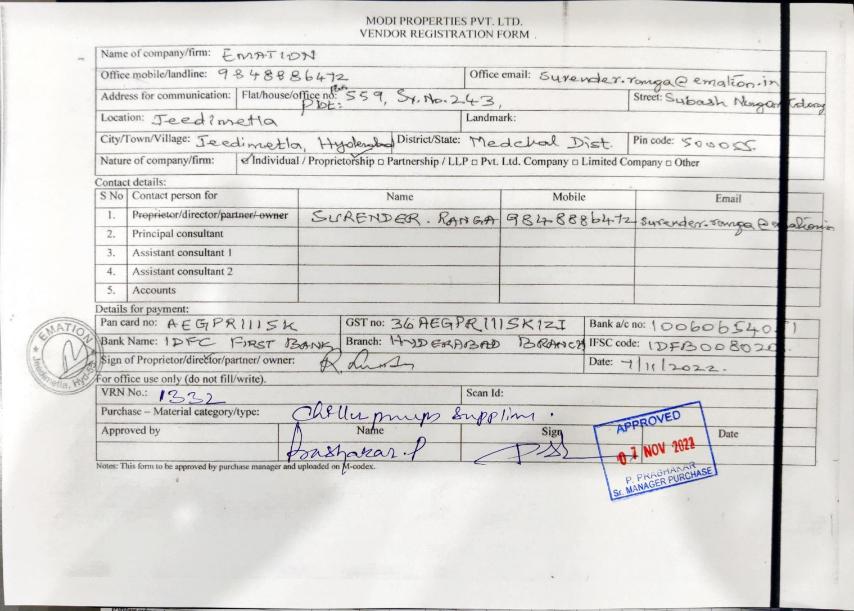 MODI PROPERTIES PVT. LTD.
VENDOR REGISTRATION FORM
Name of company/firm: EMATION
Office mobile/landline: 9848886472 Office email: surender.ranga@emation.in
Address for communication: Flat/house/office no: Plot: 559, Sy.No.243, Street: Subash Nagar
Location: Jeedimetla Landmark:
City/Town/Village: Jeedimetla, Hyderabad District/State: Medchal Dist. Pin code: 500055.
Nature of company/firm: ☑ Individual / Proprietorship □ Partnership / LLP □ Pvt. Ltd. Company □ Limited Company □ Other
Contact details:
S No Contact person for Name Mobile Email
1. Proprietor/director/partner/ owner SURENDER. RANGA 9848886472 surender.ranga@emation.in
2. Principal consultant
3. Assistant consultant 1
4. Assistant consultant 2
5. Accounts
Details for payment:
Pan card no: AEGPR1115K GST no: 36AEGPR1115K1ZI Bank a/c no:
Bank Name: IDFC FIRST BANK Branch: HYDERABAD BRANCH IFSC code:
Sign of Proprietor/director/partner/ owner: Date: 7/11/2022.
For office use only (do not fill/write).
VRN No.: 1332 Scan Id:
Purchase – Material category/type:
Approved by Name Sign Date
Prabhakar.P
APPROVED
07 NOV 2022
P. PRABHAKAR
Sr. MANAGER PURCHASE
Notes: This form to be approved by purchase manager and uploaded on M-codex.
★ EMATION ★
Jeedimetla, Hyd-55